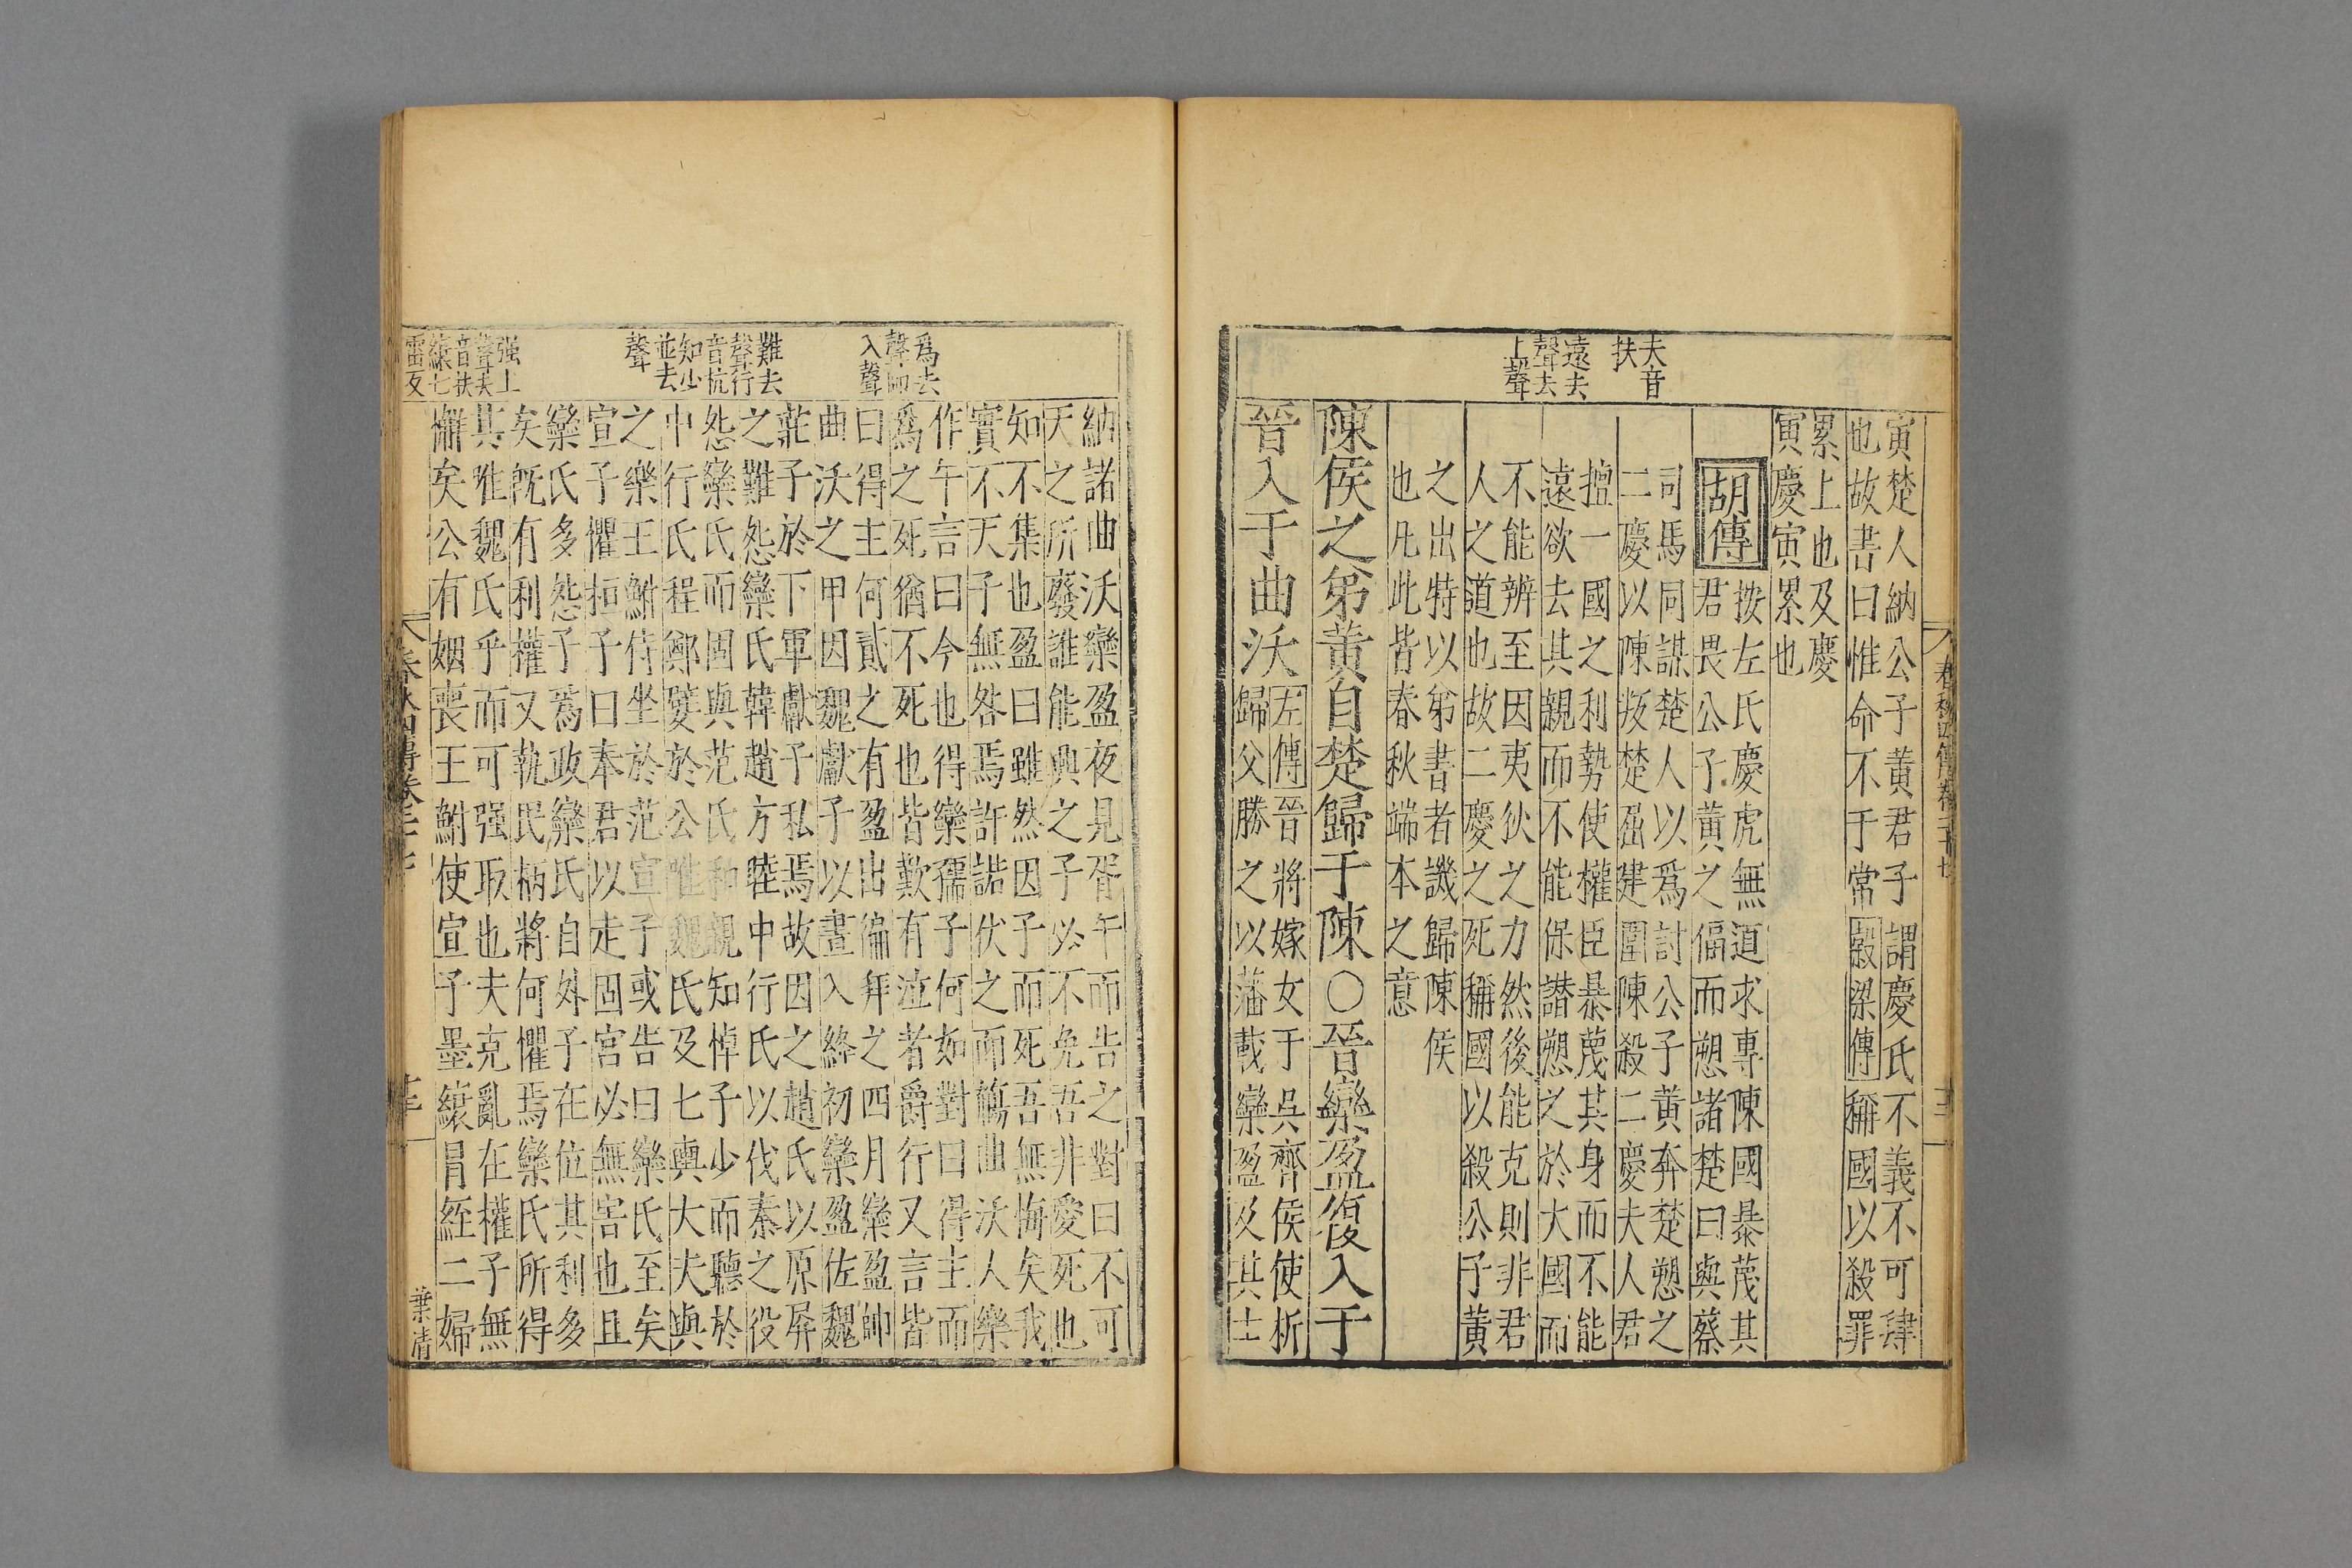 夫音
扶
遠去
聲去
上聲
寅楚人納公子黃君子謂慶氏不義不可肆
也故書曰惟命不于常穀梁傳稱國以殺罪
累上也及慶
寅慶寅累也
胡傳
按左氏慶虎無道求專陳國暴蔑其
君畏公子黃之偪而愬諸楚曰與蔡
司馬同謀楚人以爲討公子黃奔楚愬之
二慶以陳叛楚屈建圍陳殺二慶夫人君
擅一國之利勢使權臣暴蔑其身而不能
遠欲去其親而不能保譖愬之於大國而
不能辨至因夷狄之力然後能克則非君
人之道也故二慶之死稱國以殺公子黃
之出特以弟書者譏歸陳侯
也凡此皆春秋端本之意
陳侯之弟黃自楚歸于陳○晉欒盈復入于
晉入于曲沃
左傳晉將嫁女于吳齊侯使析
歸父勝之以藩載欒盈及其士
春秋四傳卷二十七
爲去
聲帥
入聲
難去
聲行
音杭
知少
並去
聲
强上
聲夫
音扶
縗七
雷反
納諸曲沃欒盈夜見胥午而告之對曰不可
天之所廢誰能興之子必不免吾非愛死也
知不集也盈曰雖然因子而死吾無悔矣我
實不天子無咎焉許諾伏之而觴曲沃人樂
作午言曰今也得欒孺子何如對曰得主而
爲之死猶不死也皆歎有泣者爵行又言皆
曰得主何貳之有盈出徧拜之四月欒盈帥
曲沃之甲因魏獻子以晝入絳初欒盈佐魏
莊子於下軍獻子私焉故因之趙氏以原屏
之難怨欒氏韓趙方睦中行氏以伐秦之役
怨欒氏而固與范氏和親知悼子少而聽於
中行氏程鄭嬖於公惟魏氏及七輿大夫與
之樂王鮒侍坐於范宣子或告曰欒氏至矣
宣子懼桓子曰奉君以走固宮必無害也且
欒氏多怨子爲政欒氏自外子在位其利多
矣既有利權又執民柄將何懼焉欒氏所得
其唯魏氏乎而可强取也夫克亂在權子無
懈矣公有姻喪王鮒使宣子墨縗冒絰二婦
葉清